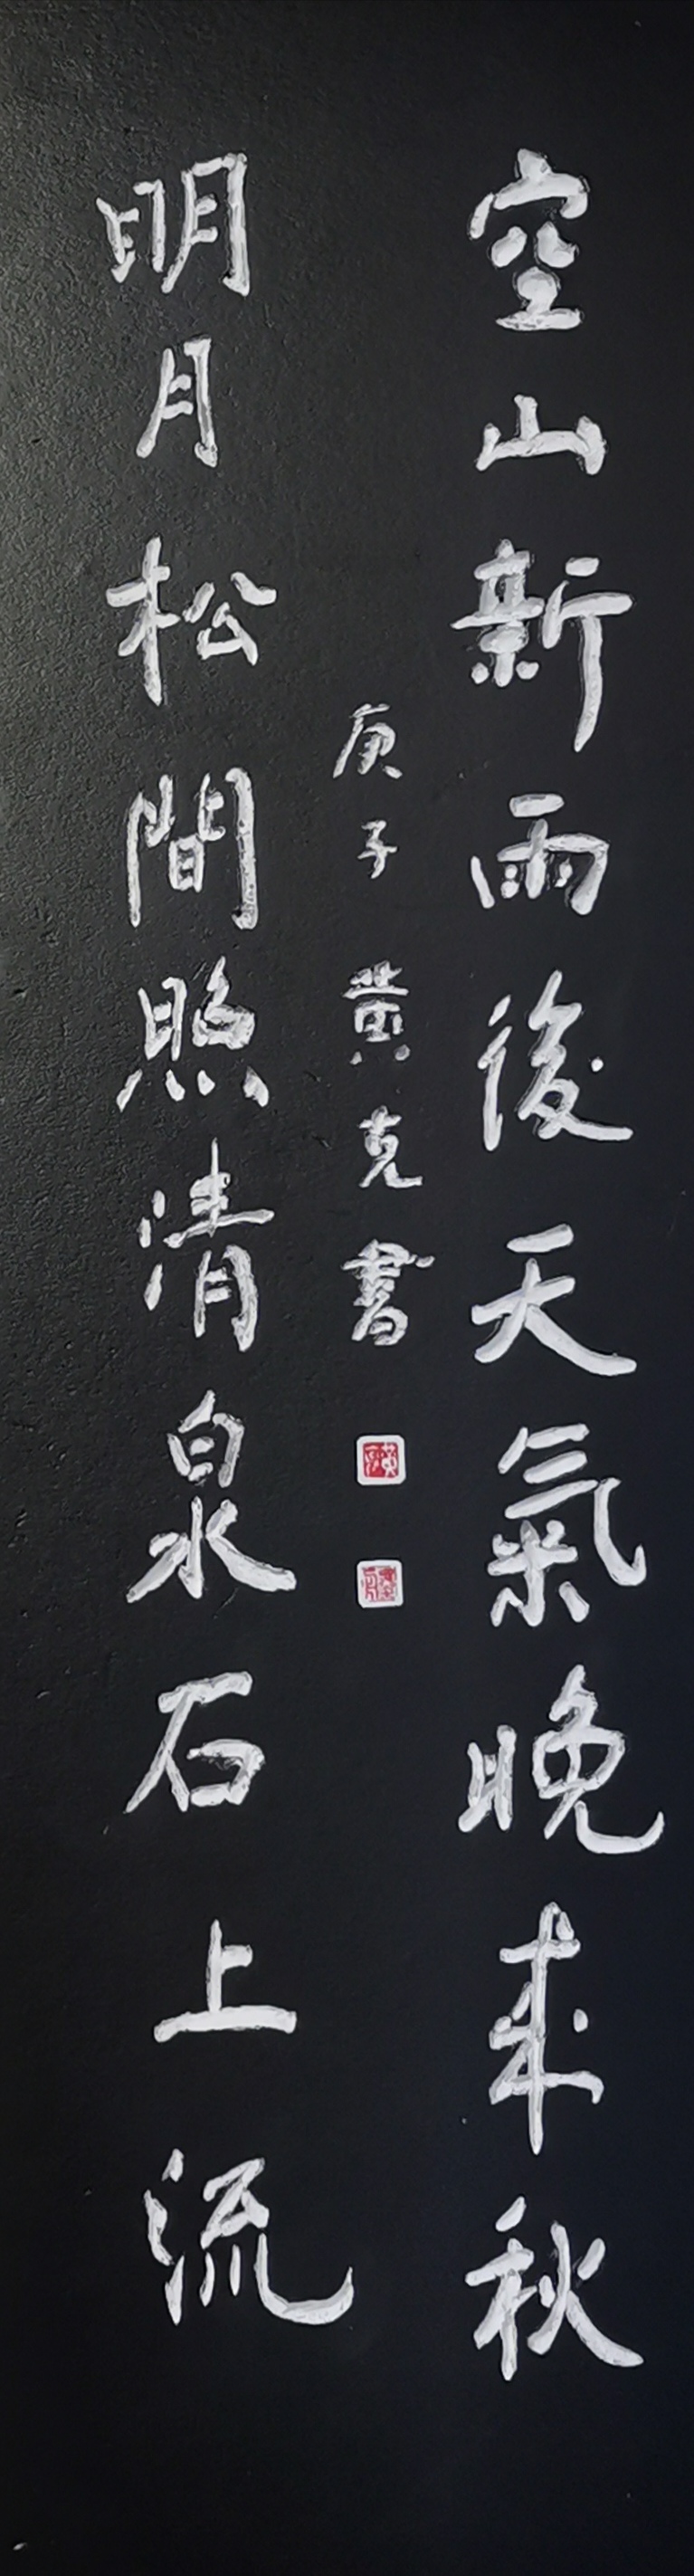 空山新雨後天氣晚来秋
明月松間照清泉石上流
庚子黄克書